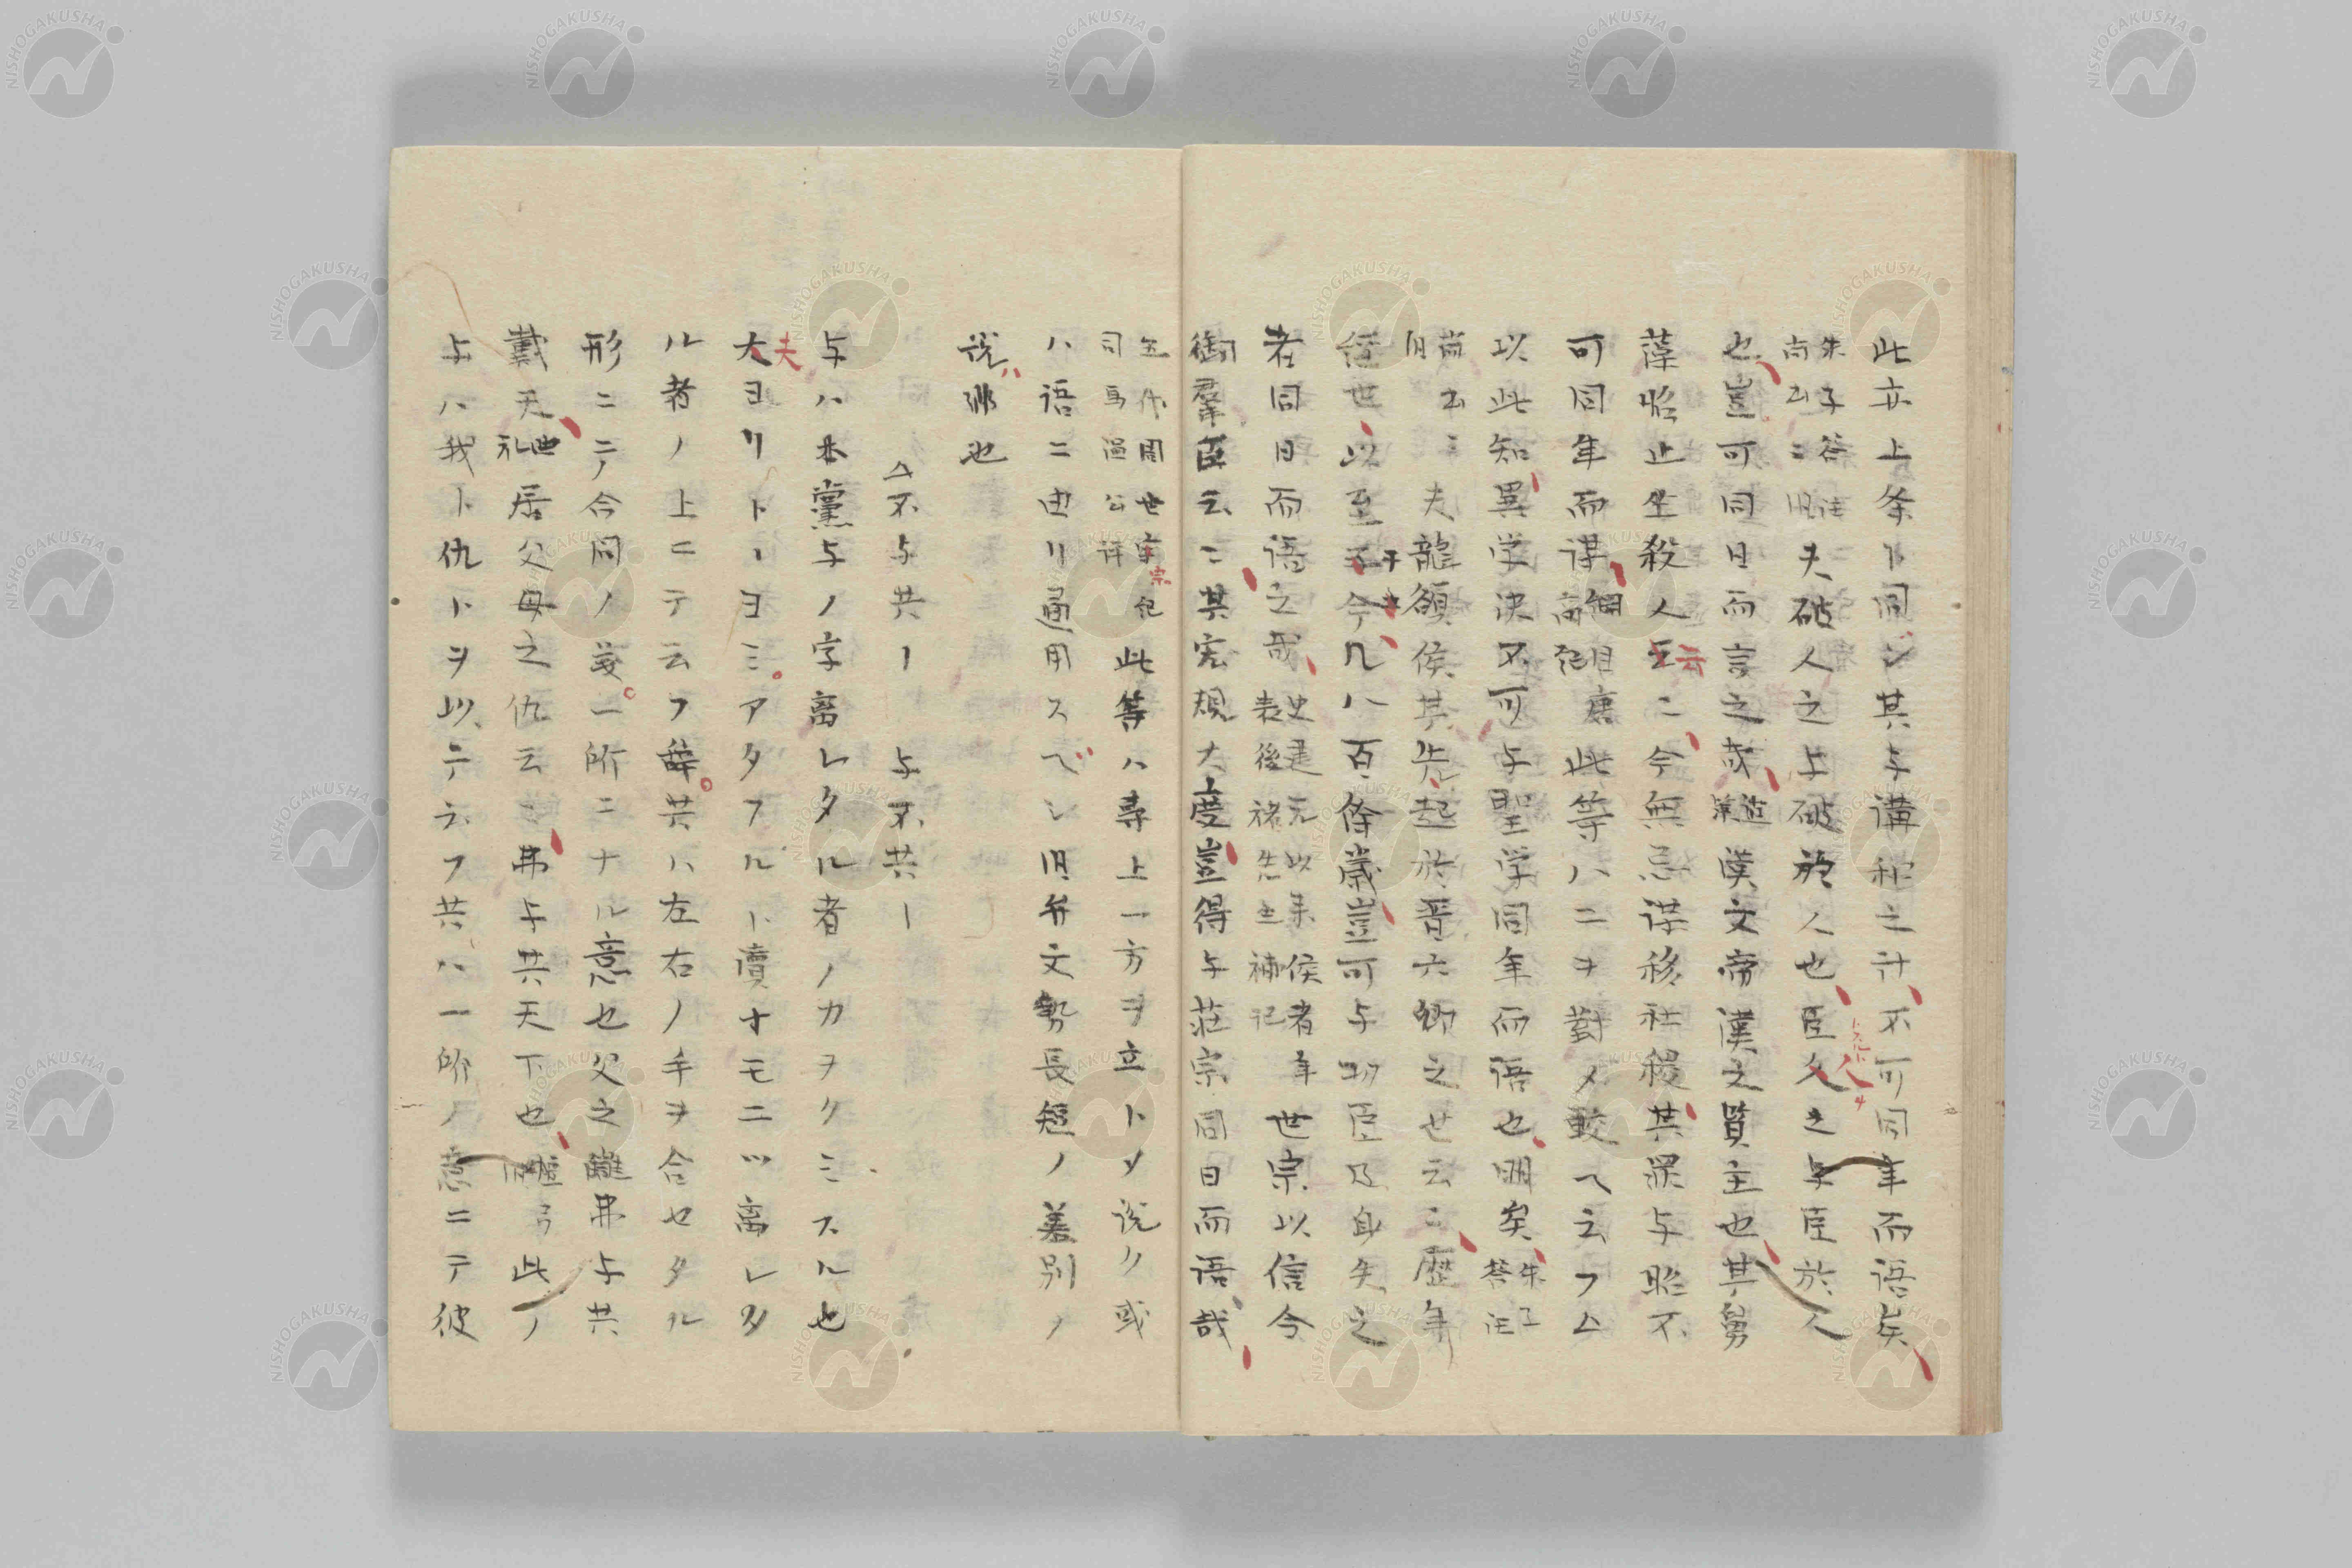 此亦上条ト同ジ其与講和之計不可同年而語矣
朱子答汪尚書云〻旧夫破人之与破於人也臣人之与臣於人
也豈可同日而言之哉漢文帝漢之賢主也其舅
薄昭止坐殺人云〻今無忌謀移社稷其罪与昭不
可同年而謀綱目唐高紀此等ハ二ヲ對メ較ヘ云フ
以此知異学決不可与聖学同年而語也明矣朱子答汪
尚書云〻旧夫龍頟侯其先起於晋六卿之世云〻歴年
経世以至于今凡八百余歳豈可与功臣及身失之
者同日而語之哉史建元以来侯者年表後褚先生補記世宗以信令
御羣臣云〻其宏規大度豈得与荘宗同日而語哉
五代周世宗紀司馬温公評此等ハ専上一方ヲ立トメ説ク或
ハ語ニ由リ通用スベシ旧弁文勢長短ノ差別ノ
説ハ非也
不与共ー 与不共ー
与ハ本黨与ノ字离レタル者ノカヲクミスル也
夫ヨリトーヨミアタフルト賣オモ二ツ离レタ
ル者ノ上ニテ云フ辞共ハ左右ノ手ヲ合セタル
形ニテ合同ノ義一所ニナル意也父之讎弗与共
戴天曲礼居父母之仇云〻弗与共天下也檀弓此ノ
与ハ我ト仇トヲ以テ云フ共ハ一所ノ意ニテ彼
NISHOGAKUSHA